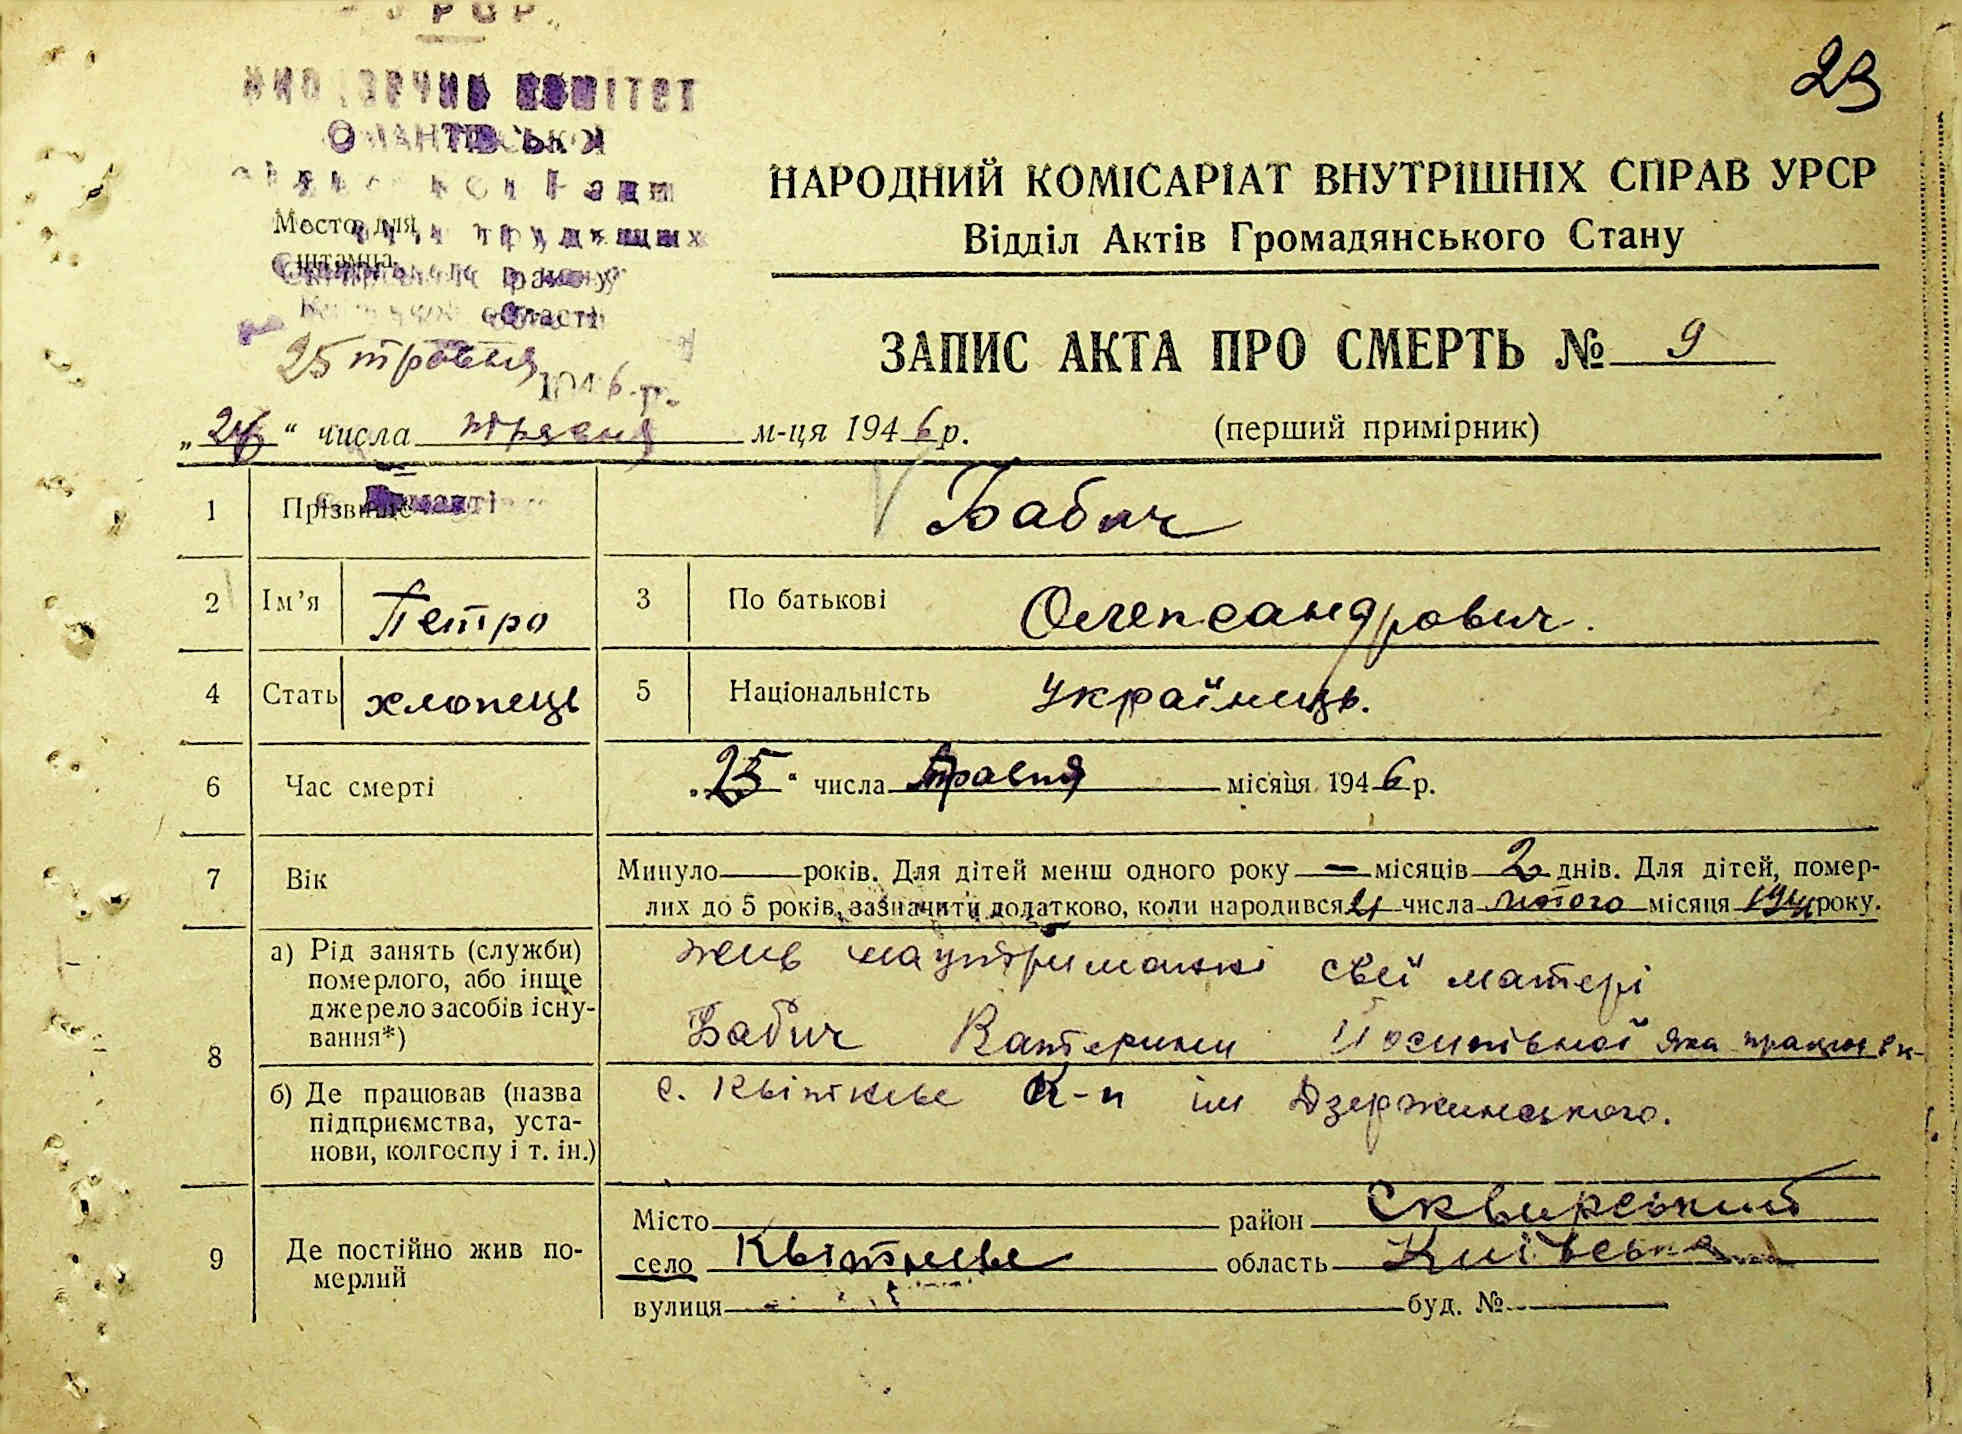 УРСР
комітет
23
НАРОДНИЙ КОМІСАРІАТ ВНУТРІШНІХ СПРАВ УРСР
Відділ Актів Громадянського Стану
Место для
штампа
району
області
ЗАПИС АКТА ПРО СМЕРТЬ № 9
25 травня 1946 р.
„26“ числа травня м-ця 1946 р.
(перший примірник)
1 Прізвище Бабич
2 Ім’я Петро 3 По батькові Олександрович.
4 Стать хлопець 5 Національність Українець.
6 Час смерті „25“ числа травня місяця 1946 р.
7 Вік Минуло — років. Для дітей менш одного року — місяців 2 днів. Для дітей, помер-
лих до 5 років, зазначити додатково, коли народився 21 числа лютого місяця року.
8 а) Рід занять (служби)
померлого, або інще
джерело засобів існу-
вання*)
жив на утриманні свеї матері
Бабич Катерини Йосипівної яка працює в к-
б) Де працював (назва
підприємства, уста-
нови, колгоспу і т. ін.)
с. Квіткове К-п ім Дзержинського.
9 Де постійно жив по-
мерлий
Місто район Сквирський
село Квіткеве область Київська
вулиця буд. №